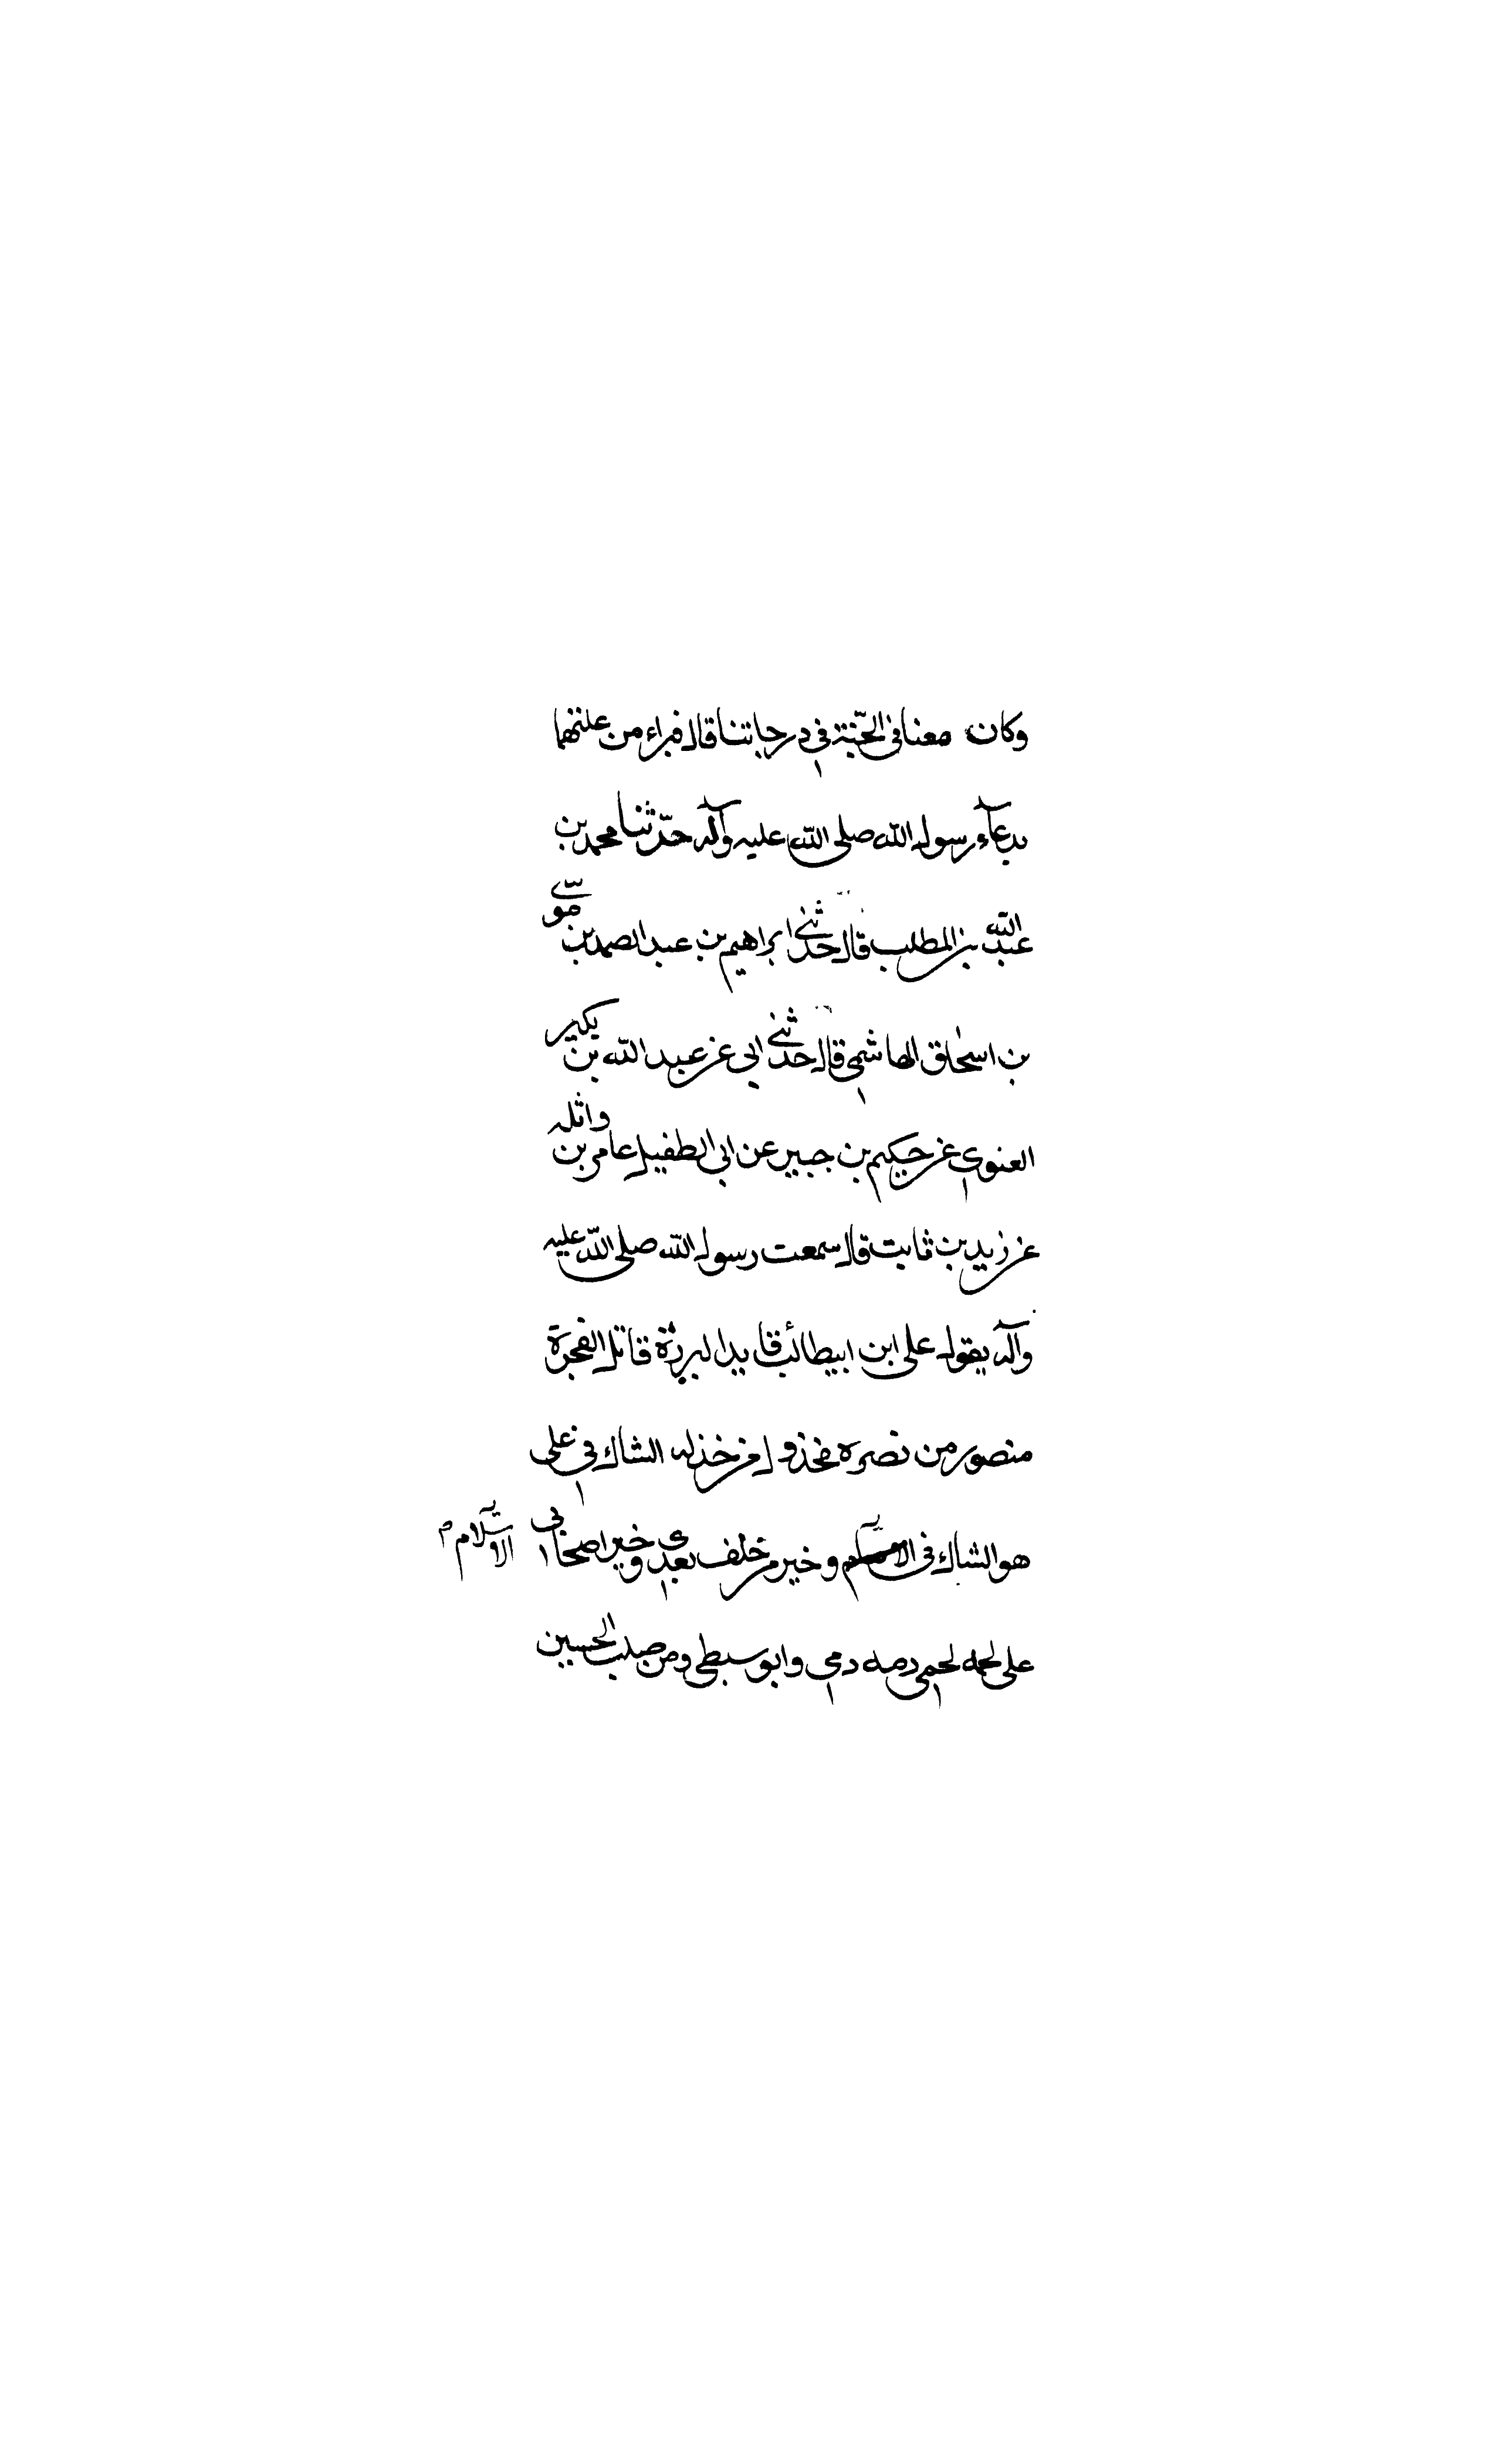 وكان معنا فى الجنّة في درجاتنا قال فبراء من علتهما
بدعآء رسول الله صلى الله عليه وآله حدّثنا محمد بن
عبد الله بن المطلب قال حدثنى ابراهيم بن عبد الصمد بن موسى
بن اسحاق الهاشمي قال حدثنى ابى عن عبيد الله بن بكير
العنوي عن حكيم بن جبير عن ابى الطفيل عامر بن واثله
عن زيد بن ثابت قال سمعت رسول الله صلى الله عليه
وآله يقول على ابن ابيطالب قايد البررة قاتل الفجرة
منصور من نصره مخذول من خذله الشاك في على
هو الشاك فى الاسلام وخير من خلف بعدي وخير اصحابي الاسلام م
على لحمه لحمي دمه دمي وابو سبطى ومن صلب الحسين